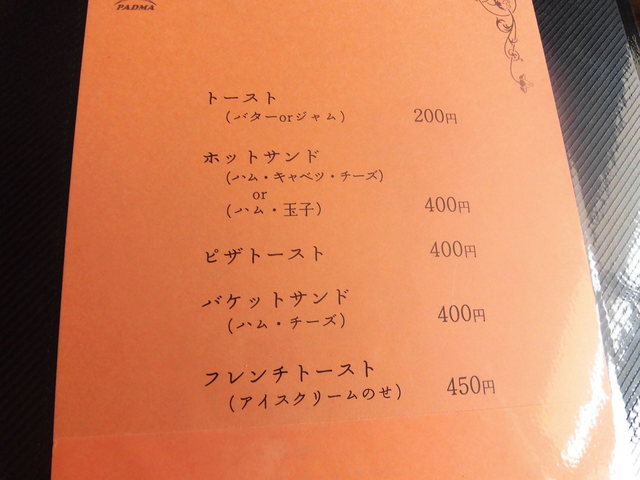 PADMA
トースト
（バターorジャム） 200円
ホットサンド
（ハム・キャベツ・チーズ）
or
（ハム・玉子） 400円
ピザトースト 400円
バケットサンド
（ハム・チーズ） 400円
フレンチトースト
（アイスクリームのせ） 450円